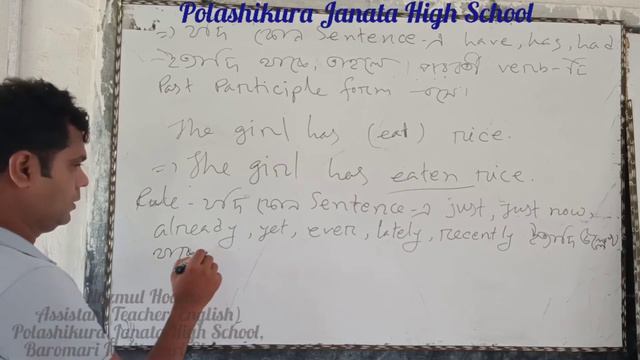 Polashikura Janata High School
=> যদি কোন Sentence-এ have, has, had
ইত্যাদি থাকে, তাহলে পরবর্তী verb-টি
Past Participle form হবে।
The girl has (eat) rice.
=> The girl has eaten rice.
Rule - যদি কোন Sentence-এ just, just now,
already, yet, ever, lately, recently ইত্যাদি উল্লেখ
থাকে
Assistant Teacher(English)
Polashikura Janata High School,